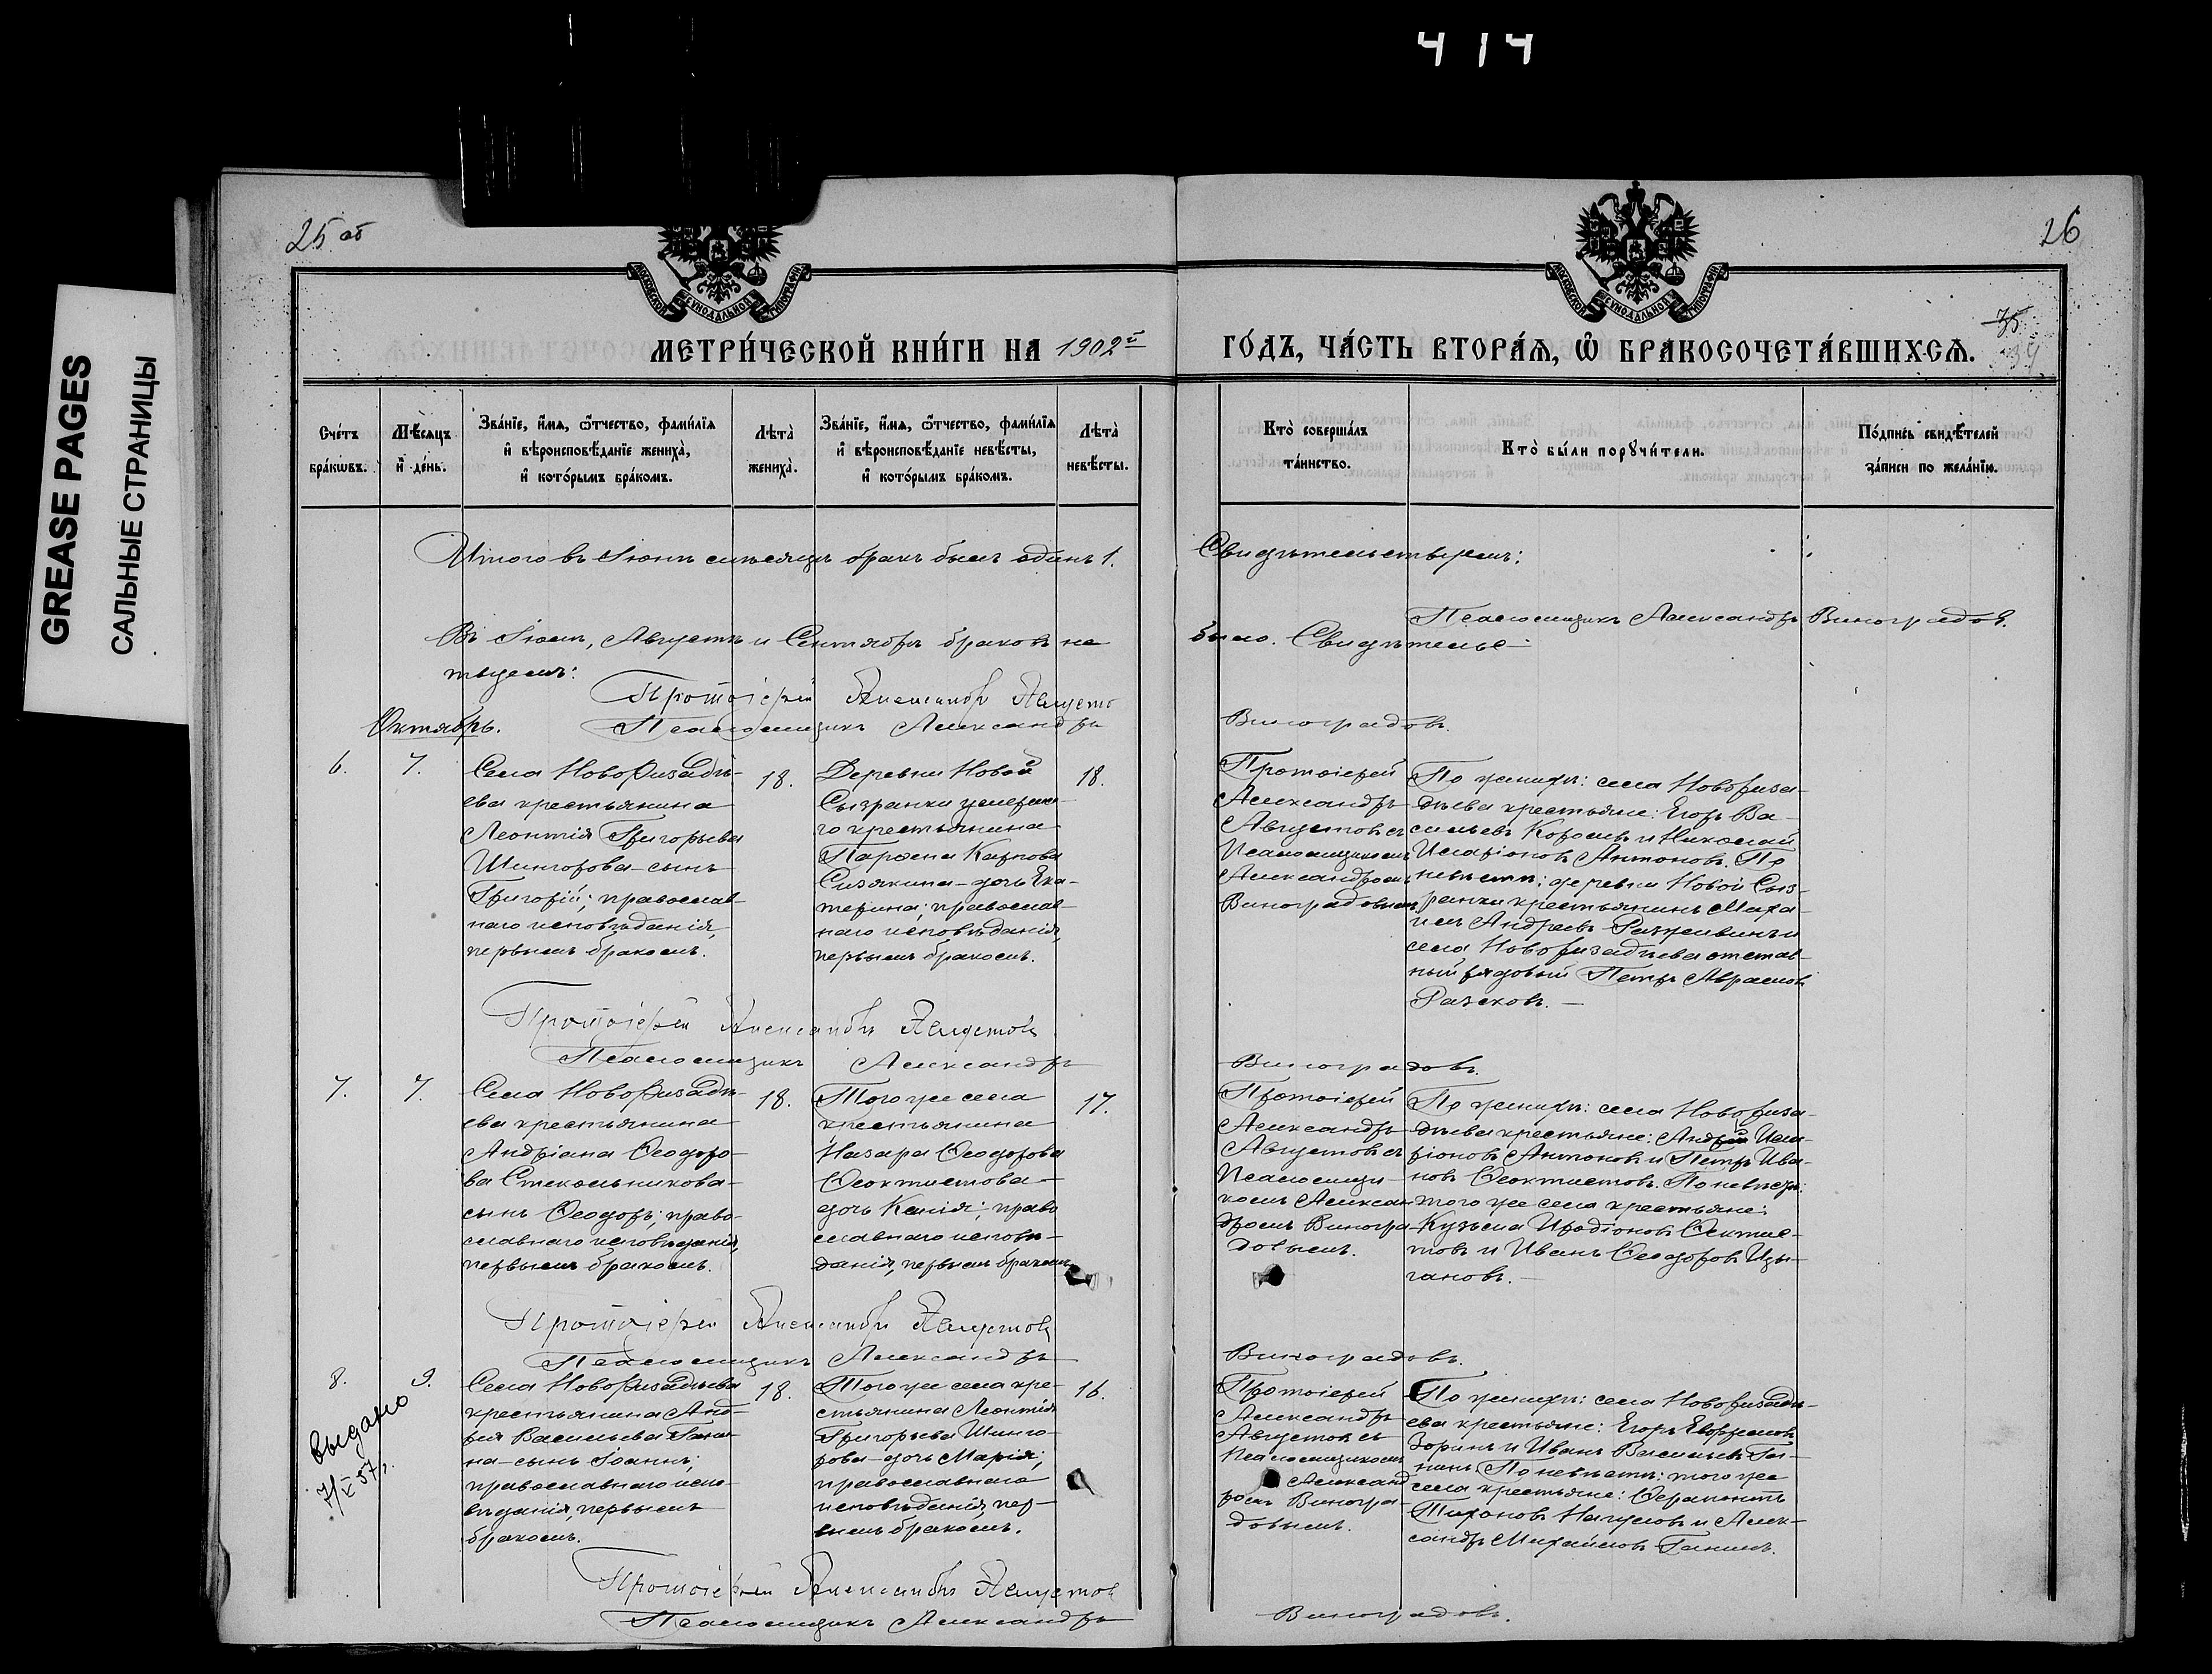 414
GREASE PAGES
САЛЬНЫЕ СТРАНИЦЫ
25 об
26
МОСКОВСКОЙ СѴНОДАЛЬНОЙ ТИПОГРАФІИ
МОСКОВСКОЙ СѴНОДАЛЬНОЙ ТИПОГРАФІИ
35
34
МЕТРИ́ЧЕСКОЙ КНИ́ГИ НА 1902й
ГО́ДЪ, ЧА́СТЬ ВТОРА́Я, Ѡ҆ БРАКОСОЧЕТА́ВШИХСЯ.
Сче́тъ
бра́кѡвъ.
Мѣ́сяцъ
и҆ де́нь.
Зва́нїе, и҆́мя, ѻ҆́тчество, фами́лїя
и҆ вѣроисповѣ́данїе жениха̀,
и҆ кото́рымъ бра́комъ.
Лѣта̀
жениха̀.
Зва́нїе, и҆́мя, ѻ҆́тчество, фами́лїя
и҆ вѣроисповѣ́данїе невѣ́сты,
и҆ кото́рымъ бра́комъ.
Лѣта̀
невѣ́сты.
Кто̀ соверша́лъ
та́инство.
Кто̀ бы́ли порꙋчи́тели.
По́дпись свидѣ́телей
за́писи по жела́нїю.
Итого въ Іюнѣ мѣсяцѣ бракъ былъ одинъ 1.
Свидѣтельствуемъ:
Псаломщикъ Александръ Виноградовъ.
Въ Іюлѣ, Августѣ и Сентябрѣ браковъ не
было. Свидѣтельс-
твуемъ:
Протоіерей Александръ Августо
Псаломщикъ Александръ
Виноградовъ.
Октябрь.
6.
7.
Села Новоризадѣ-
ева крестьянина
Леонтія Григорьева
Шингорова - сынъ
Григорій; православ-
наго исповѣданія,
первымъ бракомъ.
18.
Деревни Новой
Сызранки умерша-
го крестьянина
Парѳена Карпова
Сизякина - дочь Ека-
терина; православ-
наго исповѣданія,
первымъ бракомъ.
18.
Протоіерей
Александръ
Августовъ съ
Псаломщикомъ
Александромъ
Виноградовымъ
По женихѣ: села Новориза-
дѣева крестьяне: Егоръ Ва-
сильевъ и Николай
Иларіоновъ Антоновъ. По
невѣстѣ: деревни Новой Сыз-
ранки крестьянинъ Миха-
илъ Андреевъ и
села Новоризадѣева отстав-
ный рядовый Петръ Абрамовъ
Протоіерей Александръ Августовъ
Псаломщикъ Александръ
Виноградовъ.
7.
7.
Села Новоризадѣ-
ева крестьянина
Андріана Ѳеодоро-
ва Стекольникова -
сынъ Ѳеодоръ; право-
славнаго исповѣданія,
первымъ бракомъ.
18.
Того же села
крестьянина
Назара Ѳеодорова
Ѳеоктистова -
дочь Ксенія; право
славнаго исповѣ-
данія, первымъ бракомъ
17.
Протоіерей
Александръ
Августовъ съ
Псаломщи-
комъ Алексан-
дромъ Виногра-
довымъ.
По женихѣ: села Новориза-
дѣева крестьяне: Андрей Ила-
ріоновъ Антоновъ и Петръ Ива-
новъ Ѳеоктистовъ. По невѣстѣ:
того же села крестьяне:
Кузьма Иродіоновъ Ѳеоктис-
товъ и Иванъ Ѳеодоровъ Цы-
гановъ.
Протоіерей Александръ Августовъ
Псаломщикъ Александръ
Виноградовъ.
8.
9.
выдано
7/X 57 г.
Села Новоризадѣева
крестьянина Анд-
рея Васильева Гани-
на - сынъ Іоаннъ;
православнаго испо-
вѣданія, первымъ
бракомъ.
18.
Того же села кре-
стьянина Леонтія
Григорьева Шинго-
рова - дочь Марія;
православнаго
исповѣданія, пер-
вымъ бракомъ.
16.
Протоіерей
Александръ
Августовъ съ
Псаломщикомъ
Александ-
ромъ Виногра-
довымъ.
По женихѣ: села Новоризадѣ-
ева крестьяне: Егоръ Евфремовъ
Зоринъ и Иванъ Васильевъ Га-
нинъ. По невѣстѣ: того же
села крестьяне: Ѳерапонтъ
Тихоновъ и Алек-
сандръ Михайловъ Ганинъ.
Протоіерей Александръ Августовъ
Псаломщикъ Александръ
Виноградовъ.